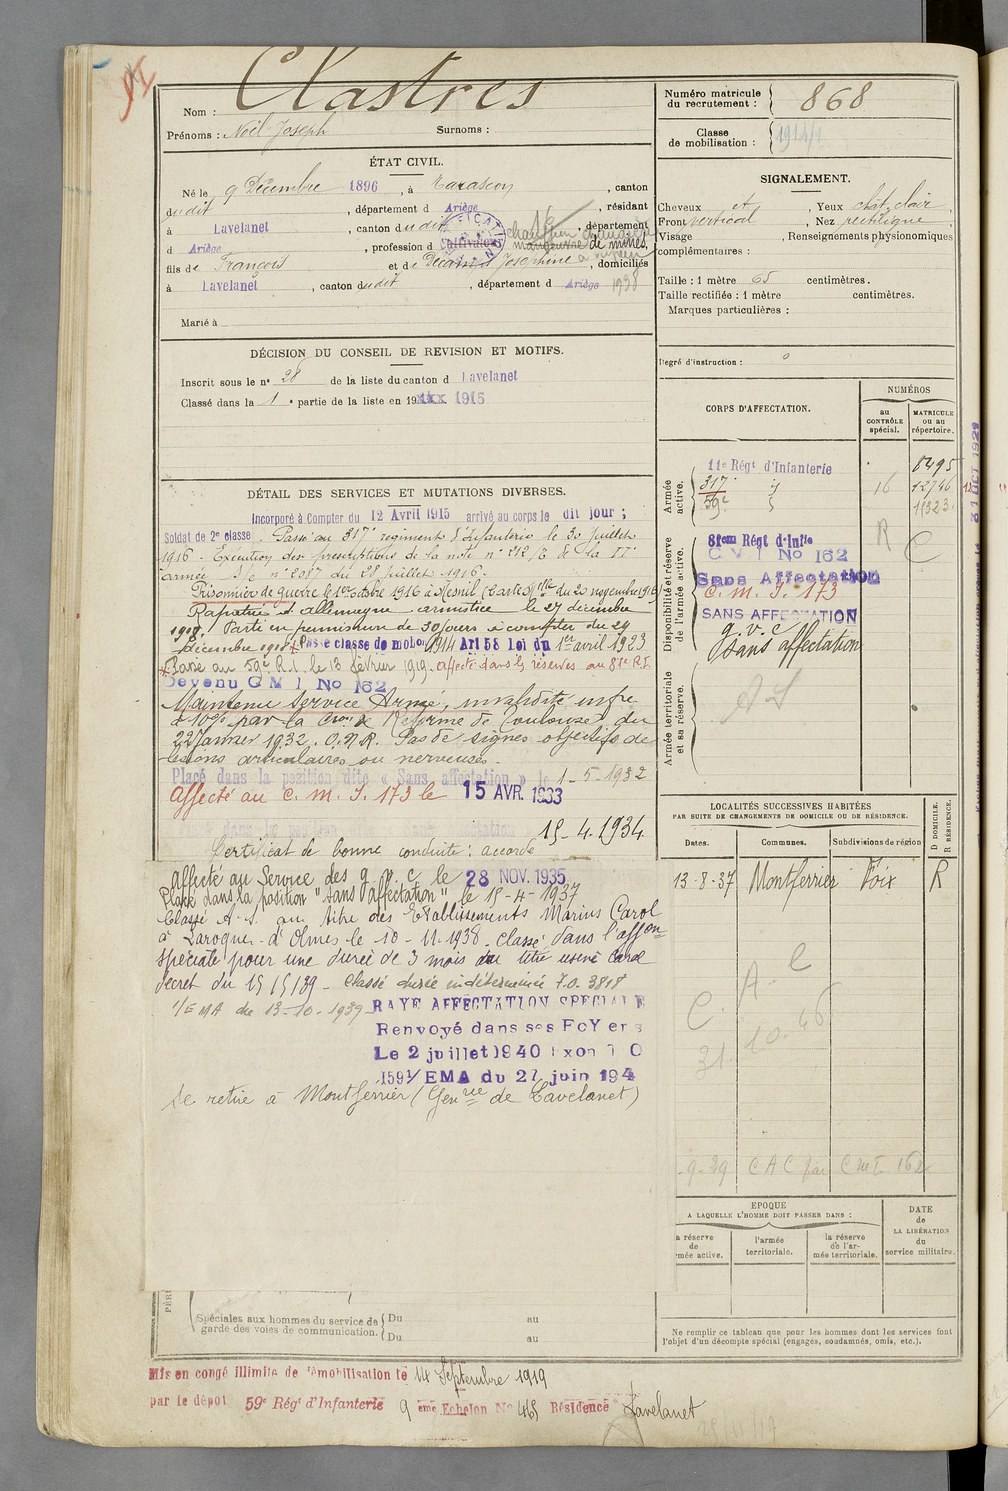 Nom : Clastres
Prénoms : Noël Joseph Surnoms :
Numéro matricule du recrutement : 868
Classe de mobilisation : 1914/1
ÉTAT CIVIL.
Né le 9 Décembre 1896, à Tarascon, canton
dudit, département d Ariège, résidant
à Lavelanet, canton dudit, département
d Ariège, profession d Cultivateur manœuvre de mines,
fils de François et de Décamps Joséphine, domiciliés
à Lavelanet, canton dudit, département d Ariège 1938
Marié à
DÉCISION DU CONSEIL DE REVISION ET MOTIFS.
Inscrit sous le n° 28 de la liste du canton d Lavelanet
Classé dans la 1e partie de la liste en 19 1915
DÉTAIL DES SERVICES ET MUTATIONS DIVERSES.
Incorporé à Compter du 12 Avril 1915 arrivé au corps le dit jour ;
Soldat de 2e classe. Passé au 317e régiment d'Infanterie le 30 juillet
1916 - Exécution des prescriptions de la note n° 212/E de la II
armée n° 2087 du 28 juillet 1916.
Prisonnier de guerre le 1er octobre 1916 à Mesnil (carte du 20 novembre 1916)
Rapatrié d'allemagne armistice le 27 décembre
1918. Parti en permission de 30 jours à compter du 29
décembre 1918 Passé classe de mobon 1914 Art 58 loi du 1er avril 1923
Passé au 59e R.I. le 13 février 1919. affecté dans les réserves au 81e R.I.
Devenu C M I No 162
Maintenu Service Armé, invalidité infre
à 10% par la Cion de Réforme de Toulouse du
22 Janvier 1932. O.N.R. Pas de signes objectifs de
lésions articulaires ou nerveuses.
Placé dans la position dite « Sans affectation » le 1-5-1932
Affecté au C. M. I. 173 le 15 AVR. 1933
15-4-1934
Certificat de bonne conduite : accordé
affecté au Service des g.v.c le 28 NOV. 1935
Placé dans la position "sans affectation" le 15-4-1937
Classé A.S. au titre des Établissements Marius Carol
à Laroque-d'Olmes le 10-11-1938. Classé dans l'affon
spéciale pour une durée de 3 mois au titre usine Carol
décret du - Classé durée indéterminée J.O. 3818
1/EMA du 13-10-1939 - RAYE AFFECTATION SPECIALE
Renvoyé dans ses FoYers
Le 2 juillet 1940
1591/EMA du 27 juin 194
Se retire à Montferrier (Genrie de Lavelanet)
Spéciales aux hommes du service de garde des voies de communication. Du au
Du au
Mis en congé illimité de démobilisation le 14 Septembre 1919
par le dépôt 59e Régt d'Infanterie 9 eme Echelon No 465 Résidence Lavelanet
SIGNALEMENT.
Cheveux et, Yeux chât. clair,
Front vertical, Nez rectiligne,
Visage, Renseignements physionomiques
complémentaires :
Taille : 1 mètre 65 centimètres.
Taille rectifiée : 1 mètre centimètres.
Marques particulières :
Degré d'instruction : 0
CORPS D'AFFECTATION.
NUMÉROS
au CONTRÔLE spécial.
MATRICULE ou au répertoire.
Armée active.
11e Régt d'Infanterie 8495
317e 16 12746
59e 15323
Disponibilité et réserve de l'armée active.
81em Régt d'Infie R C
C M I No 162
Sans Affectation
C. M. I. 173
SANS AFFECTATION
g.v.c
sans affectation
Armée territoriale et sa réserve.
A S
LOCALITÉS SUCCESSIVES HABITÉES
PAR SUITE DE CHANGEMENTS DE DOMICILE OU DE RÉSIDENCE.
Dates. Communes. Subdivisions de région
D DOMICILE. R RÉSIDENCE.
13-8-37 Montferrier Foix R
C. A. C
31. 10. 46
-9-29 C A C par CMI 162
EPOQUE
A LAQUELLE L'HOMME DOIT PASSER DANS :
DATE de LA LIBÉRATION du service militaire.
a réserve de mée active.
l'armée territoriale.
la réserve de l'armée territoriale.
Ne remplir ce tableau que pour les hommes dont les services font
l'objet d'un décompte spécial (engagés, condamnés, omis, etc.).